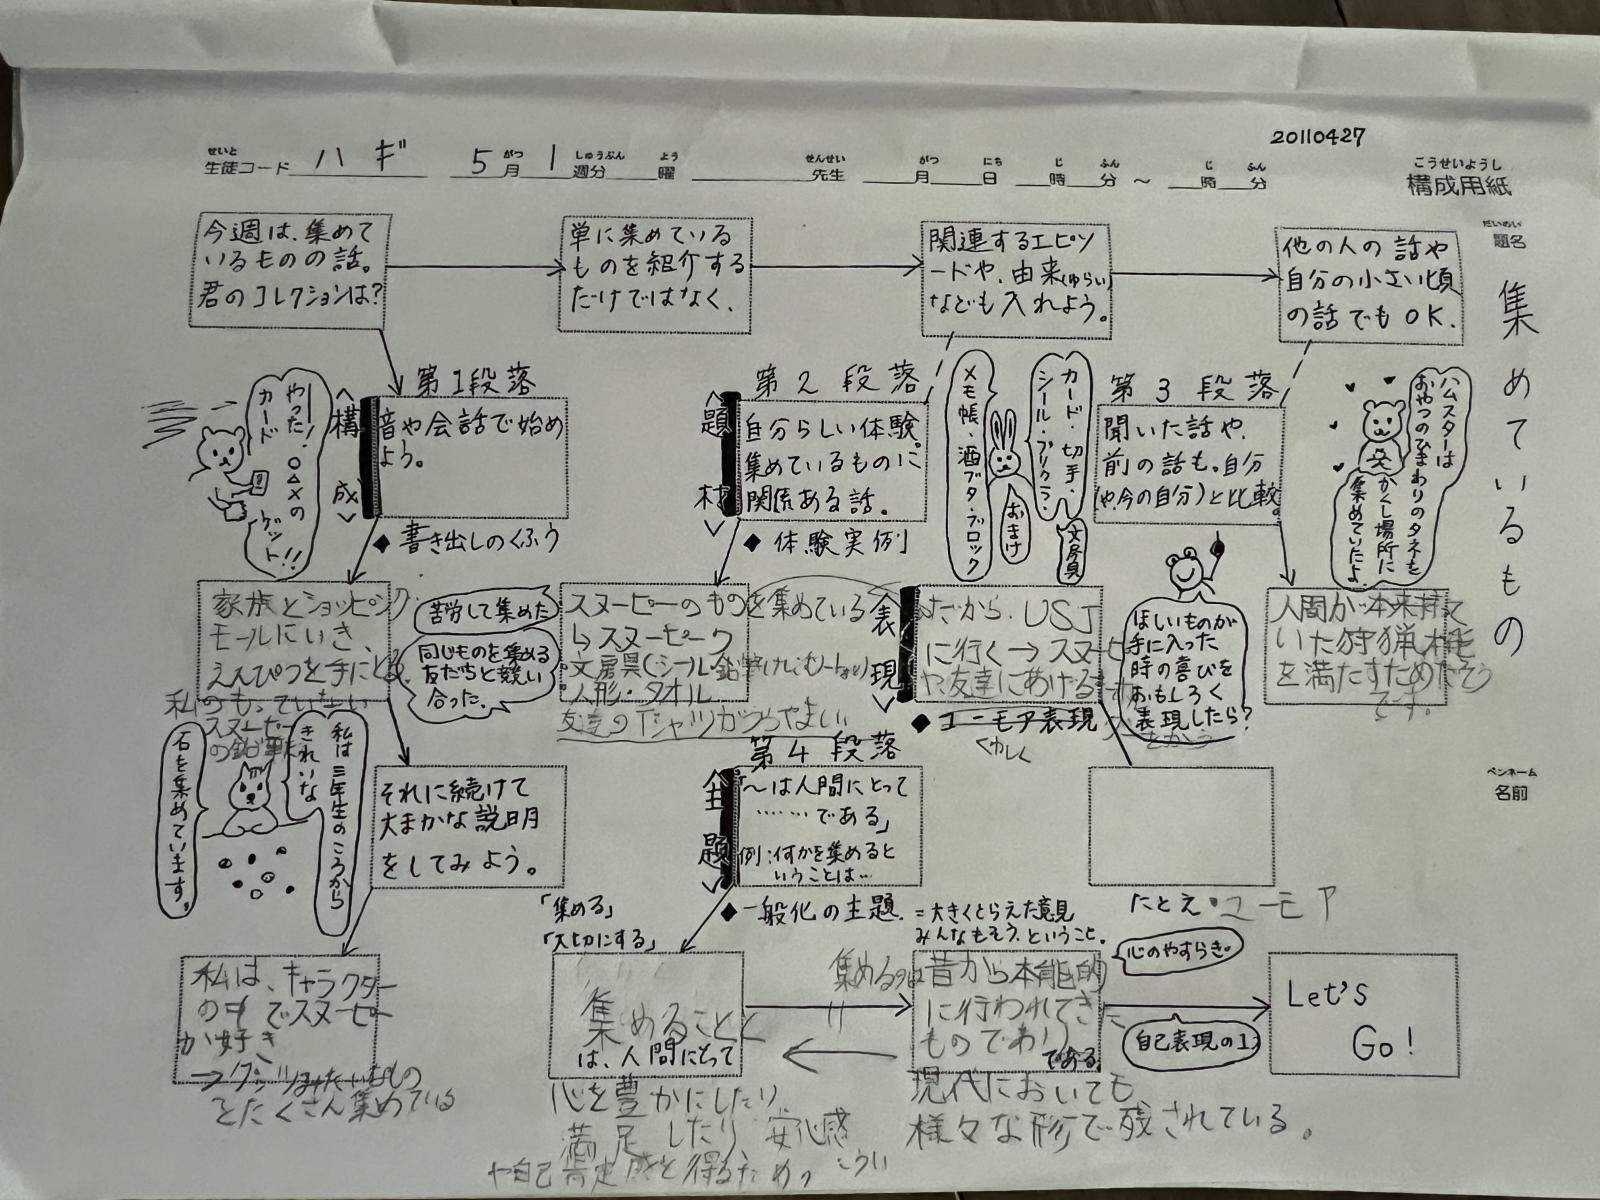 20110427
せいと
生徒コード ハギ 5月1週分 曜 先生 月 日 時 分 ～ 時 分
がつ しゅうぶん よう せんせい がつ にち じ ふん じ ふん
こうせいようし
構成用紙
だいめい
題名
集めているもの
ペンネーム
名前
今週は、集めて
いるものの話。
君のコレクションは?
単に集めている
ものを紹介する
だけではなく、
関連するエピソ
ードや、由来(ゆらい)
なども入れよう。
他の人の話や
自分の小さい頃
の話でもOK.
第1段落
<構成>
音や会話で始め
よう。
◆書き出しのくふう
やった!○△×の
カード
ゲット!!
家族とショッピング
モールにいき、
えんぴつを手にとる
私のもっていない
スヌーピー
の鉛筆
私は三年生のころから
きれいな
石を集めています。
それに続けて
大まかな説明
をしてみよう。
私は、キャラクター
の中でスヌーピー
が好き
→グッズみたいなもの
をたくさん集めている
第2段落
<題材>
自分らしい体験。
集めているものに
関係ある話。
◆体験実例
カード・切手・
シール・プリクラ・
文房具
メモ帳・酒ブタ・ブロック
おまけ
苦労して集めた
同じものを集める
友だちと競い
合った。
スヌーピーのものを集めている
↳スヌーピーワ
文房具(シール・鉛筆・けしゴム・ノートなど)
人形・タオル
友達のTシャツがうらやましい
第3段落
聞いた話や、
前の話も。自分
(や今の自分)と比較。
<表現>
だから、USJ
に行く→スヌーピ
や友達にあげる
をかう
◆ユーモア表現
くわしく
ほしいものが
手に入った
時の喜びを
おもしろく
表現したら?
ハムスターは
おやつのひまわりのタネを
かくし場所に
集めていたよ
人間が本来持って
いた狩猟本能
を満たすためだそう
です。
たとえ・ユーモア
第4段落
<主題>
「～は人間にとって
……である」
例:何かを集めると
いうことは…
◆一般化の主題.=大きくとらえた意見
みんなもそう、ということ。
「集める」
「大切にする」
集めること
は、人間にとって
心を豊かにしたり
満足したり、安心感
や自己肯定感を得るための
こうい
集めるのは昔から本能的
に行われてきた
ものであり
である。
現代においても
様々な形で残されている。
心のやすらぎ。
自己表現の1つ
Let's
Go!